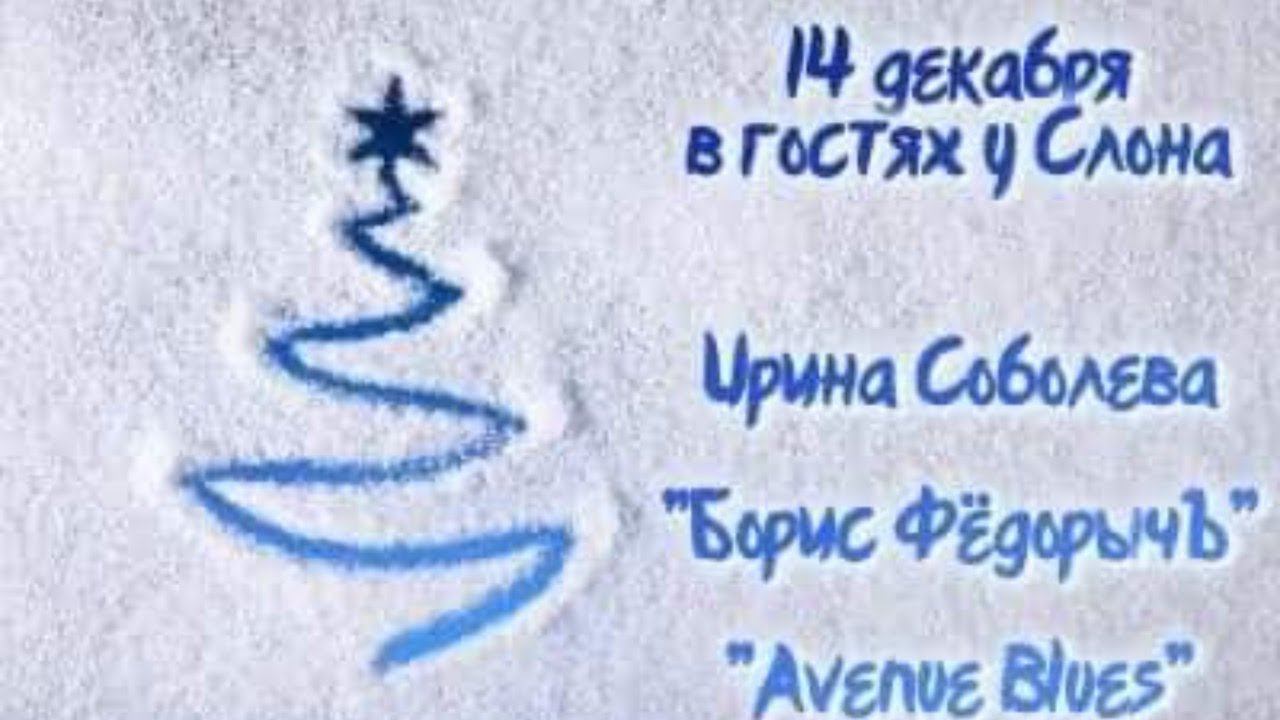 14 декабря
в гостях у Слона
Ирина Соболева
"Борис ФёдорычЪ"
"Avenue Blues"